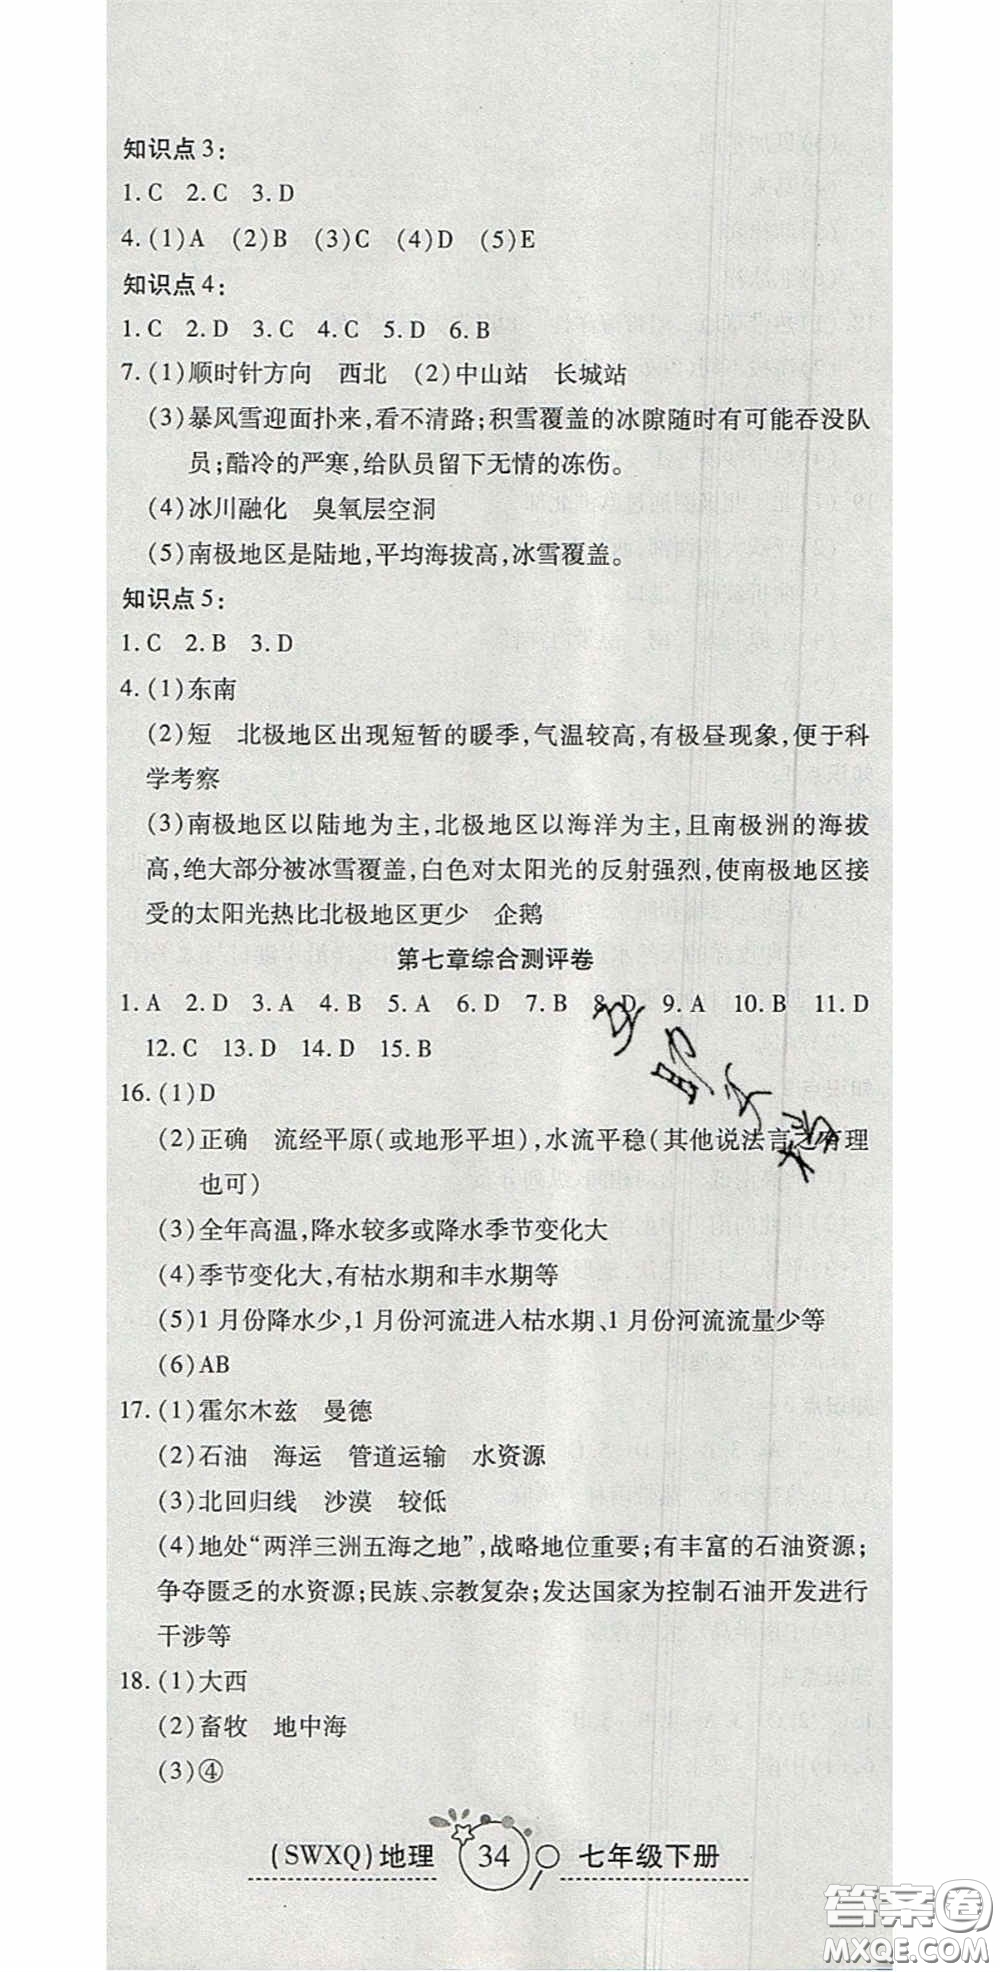 知识点3:
1.C 2.C 3.D
4.(1)A (2)B (3)C (4)D (5)E
知识点4:
1.C 2.D 3.C 4.C 5.D 6.B
7.(1)顺时针方向 西北 (2)中山站 长城站
(3)暴风雪迎面扑来,看不清路;积雪覆盖的冰隙随时有可能吞没队
员;酷冷的严寒,给队员留下无情的冻伤。
(4)冰川融化 臭氧层空洞
(5)南极地区是陆地,平均海拔高,冰雪覆盖。
知识点5:
1.C 2.B 3.D
4.(1)东南
(2)短 北极地区出现短暂的暖季,气温较高,有极昼现象,便于科
学考察
(3)南极地区以陆地为主,北极地区以海洋为主,且南极洲的海拔
高,绝大部分被冰雪覆盖,白色对太阳光的反射强烈,使南极地区接
受的太阳光热比北极地区更少 企鹅
第七章综合测评卷
1.A 2.D 3.A 4.B 5.A 6.D 7.B 8.D 9.A 10.B 11.D
12.C 13.D 14.D 15.B
16.(1)D
(2)正确 流经平原(或地形平坦),水流平稳(其他说法言之有理
也可)
(3)全年高温,降水较多或降水季节变化大
(4)季节变化大,有枯水期和丰水期等
(5)1月份降水少,1月份河流进入枯水期、1月份河流流量少等
(6)AB
17.(1)霍尔木兹 曼德
(2)石油 海运 管道运输 水资源
(3)北回归线 沙漠 较低
(4)地处“两洋三洲五海之地”,战略地位重要;有丰富的石油资源;
争夺匮乏的水资源;民族、宗教复杂;发达国家为控制石油开发进行
干涉等
18.(1)大西
(2)畜牧 地中海
(3)④
(SWXQ)地理 34 七年级下册
答案圈
MXQE.COM